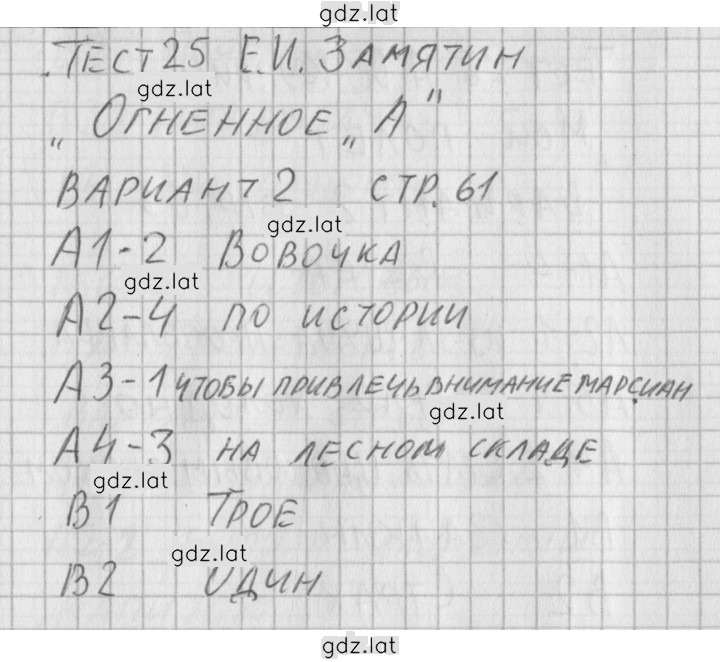 gdz.lat
Тест 25 Е.И. Замятин
gdz.lat
„Огненное „А"
Вариант 2 стр. 61
gdz.lat
А1-2 Вовочка
gdz.lat
А2-4 по истории
А3-1 чтобы привлечь внимание марсиан
gdz.lat
А4-3 на лесном складе
gdz.lat
В1 Трое
gdz.lat
В2 один
gdz.lat